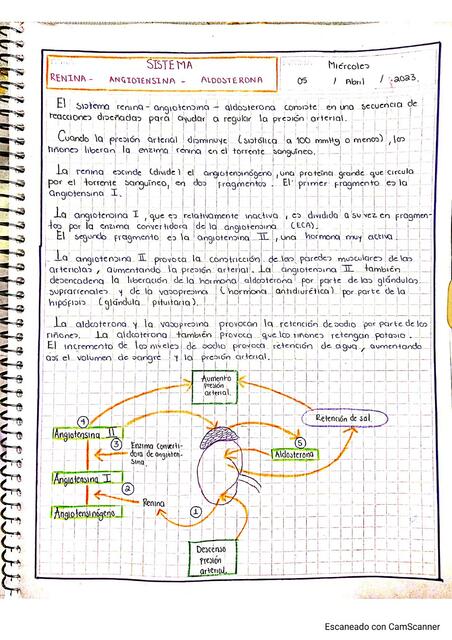 SISTEMA
RENINA - ANGIOTENSINA - ALDOSTERONA
Miércoles
05 / Abril / 2023.
El Sistema renina-angiotensina-aldosterona consiste en una secuencia de
reacciones diseñadas para ayudar a regular la presión arterial.
Cuando la presión arterial disminuye (sistólica a 100 mmHg o menos), los
riñones liberan la enzima renina en el torrente sanguíneo.
La renina escinde (divide) el angiotensinógeno, una proteína grande que circula
por el torrente sanguíneo, en dos fragmentos. El primer fragmento es la
angiotensina I.
La angiotensina I, que es relativamente inactiva, es dividida a su vez en fragmen-
tos por la enzima convertidora de la angiotensina (ECA).
El segundo fragmento es la angiotensina II, una hormona muy activa.
La angiotensina II provoca la constricción de las paredes musculares de las
arteriolas, aumentando la presión arterial. La angiotensina II también
desencadena la liberación de la hormona aldosterona por parte de las glándulas
suprarrenales y de la vasopresina (hormona antidiurética) por parte de la
hipófisis (glándula pituitaria).
La aldosterona y la vasopresina provocan la retención de sodio por parte de los
riñones. La aldosterona también provoca que los riñones retengan potasio.
El incremento de los niveles de sodio provoca retención de agua, aumentando
así el volumen de sangre y la presión arterial.
Aumento
presión
arterial.
Retención de sal.
4
Angiotensina II
3
Enzima converti-
dora de angioten-
sina.
5
Aldosterona
Angiotensina I
2
Renina
1
Angiotensinógeno
Descenso
presión
arterial.
Escaneado con CamScanner